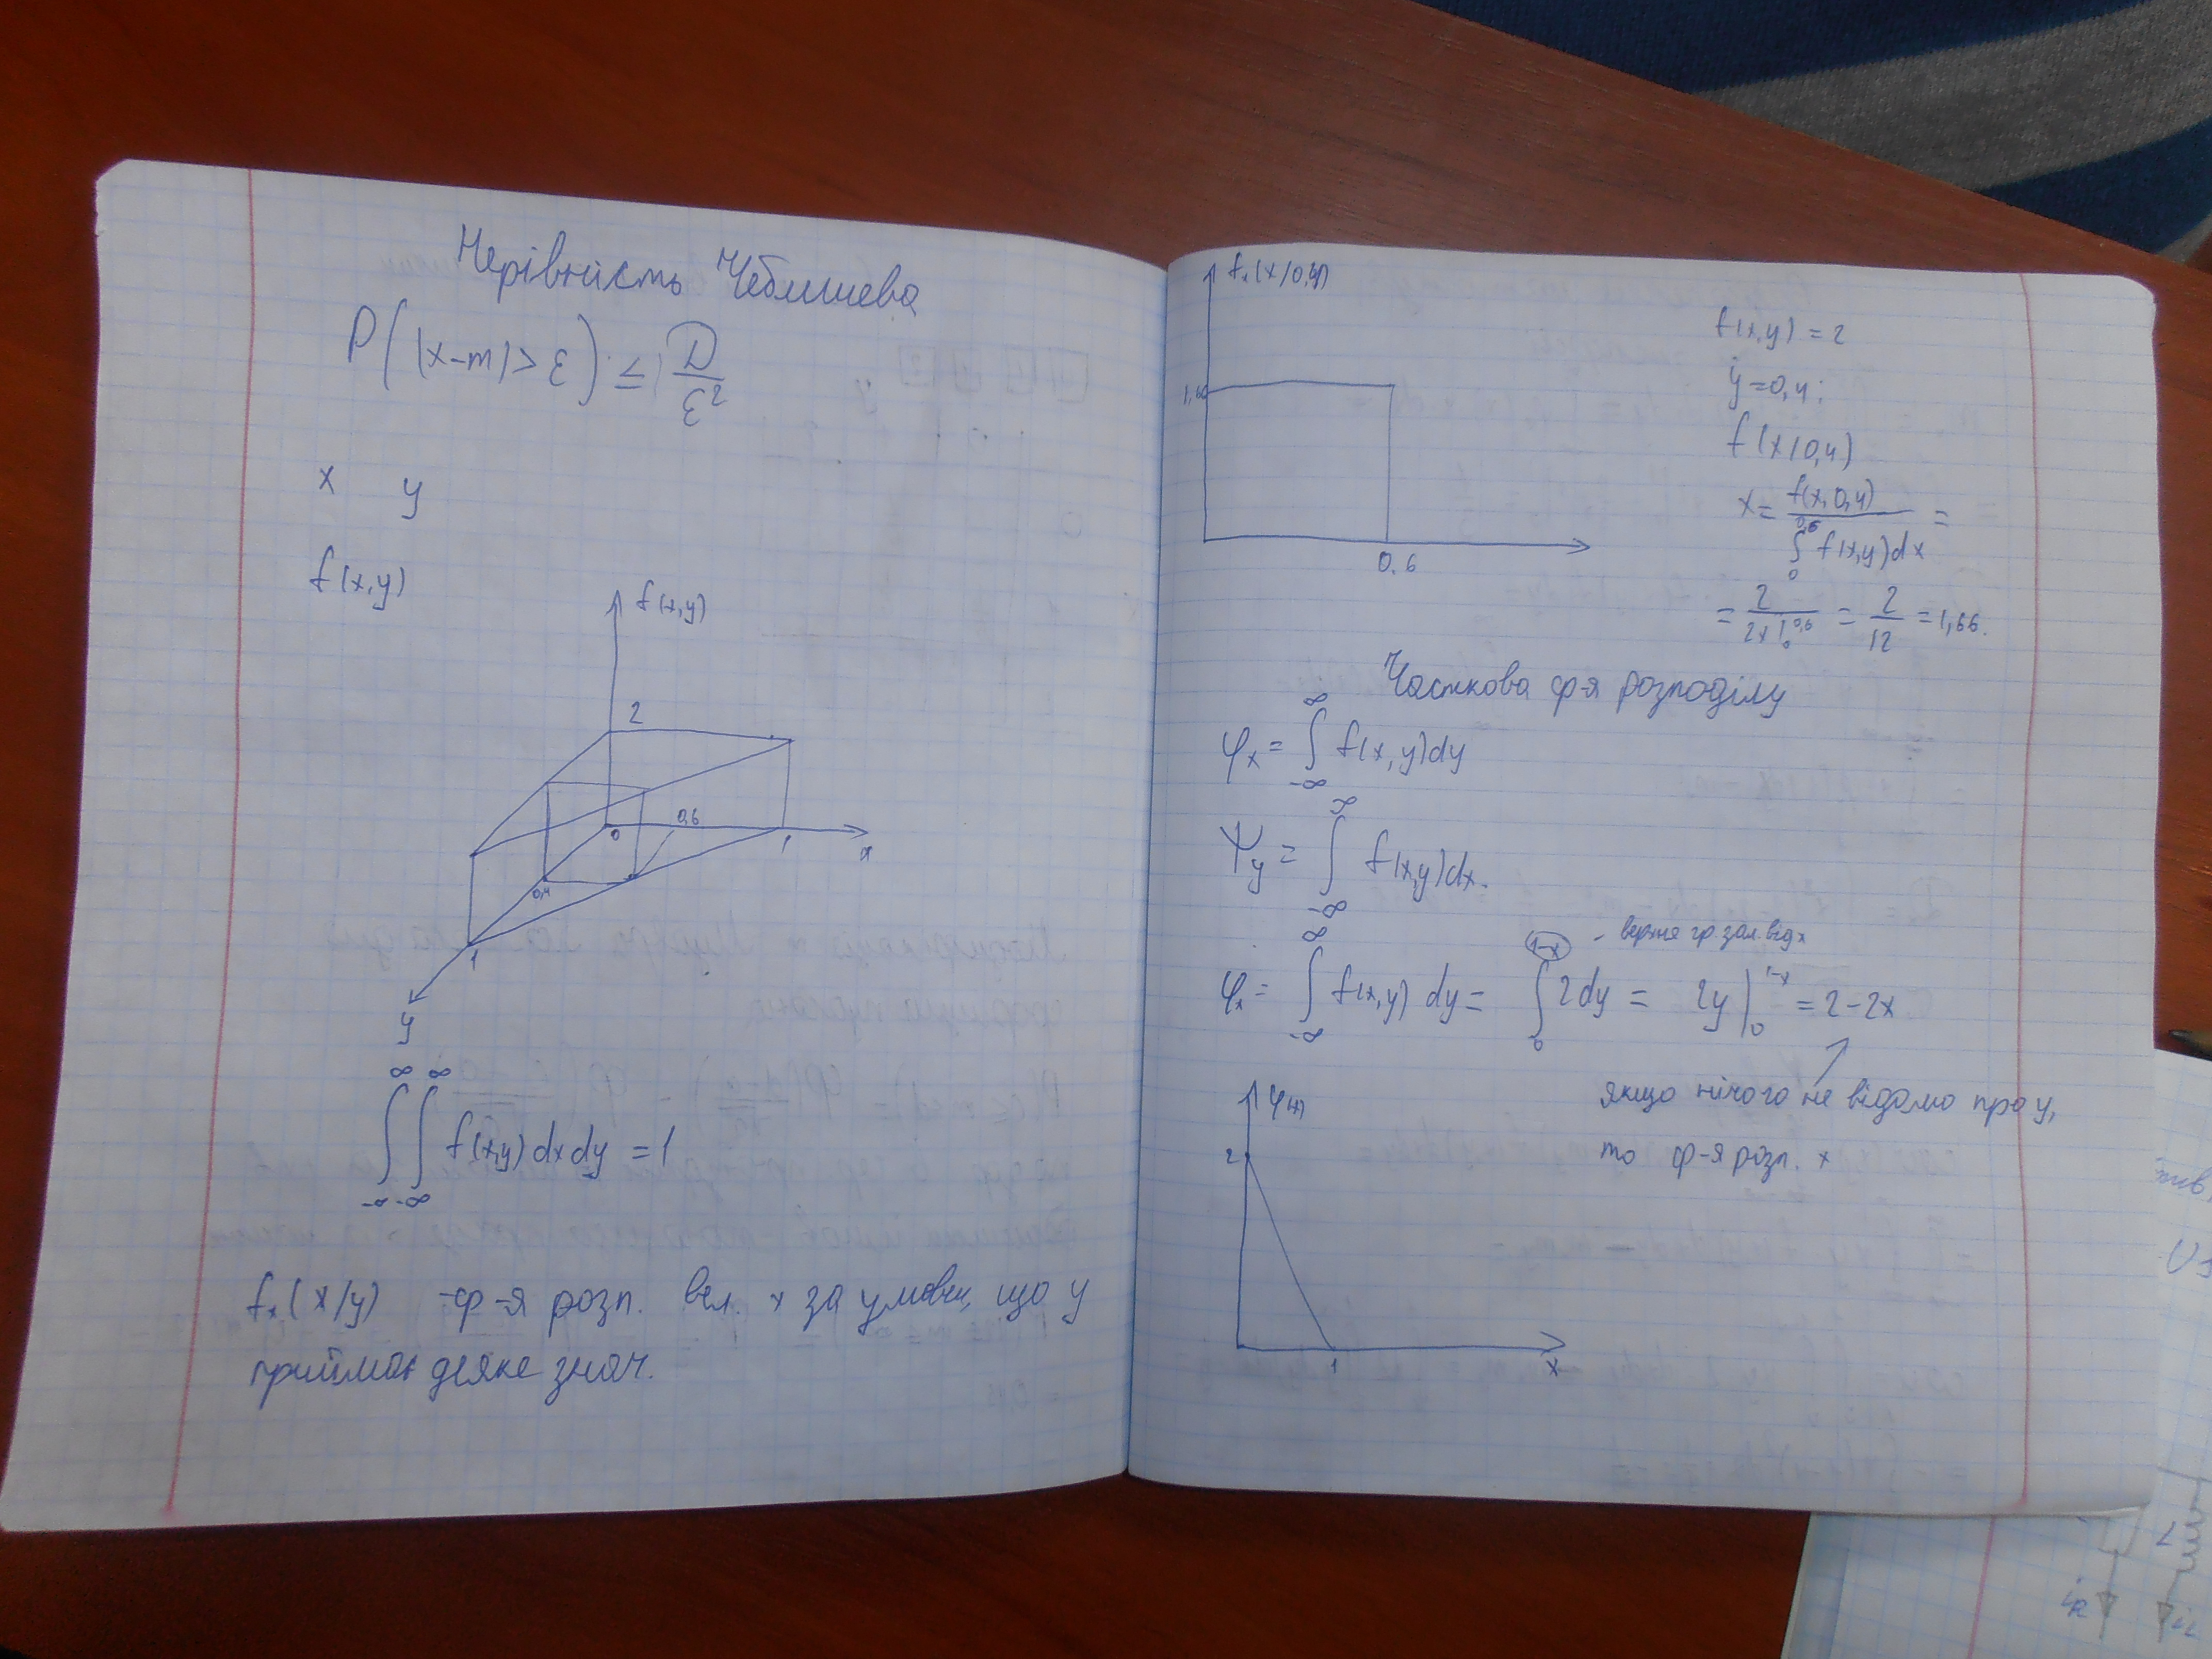 Нерівність Чебишева
P(|x-m|>ε) ≤ D/ε²
x y
f(x,y)
f(x,y)
2
0,6
0
1
x
0,4
1
y
∞ ∞
∫ ∫ f(x,y)dxdy = 1
-∞ -∞
fₓ(x/y) -ф-я розп. вел. x за умови, що y
приймає деяке знач.
fₓ(x/0,4)
1,66
0,6
f(x,y) = 2
y = 0,4;
f(x/0,4)
x = f(x,0,4) / ∫₀^0,6 f(x,y)dx =
= 2 / 2x|₀^0,6 = 2/12 = 1,66.
Часткова ф-я розподілу
φₓ = ∫_{-∞}^{∞} f(x,y)dy
Ψ_y = ∫_{-∞}^{∞} f(x,y)dx.
- верхня гр. зал. від x
φₓ = ∫_{-∞}^{∞} f(x,y) dy = ∫₀^{1-x} 2dy = 2y|₀^{1-x} = 2-2x
якщо нічого не відомо про y,
то ф-я розп. x
φ(x)
2
1
x